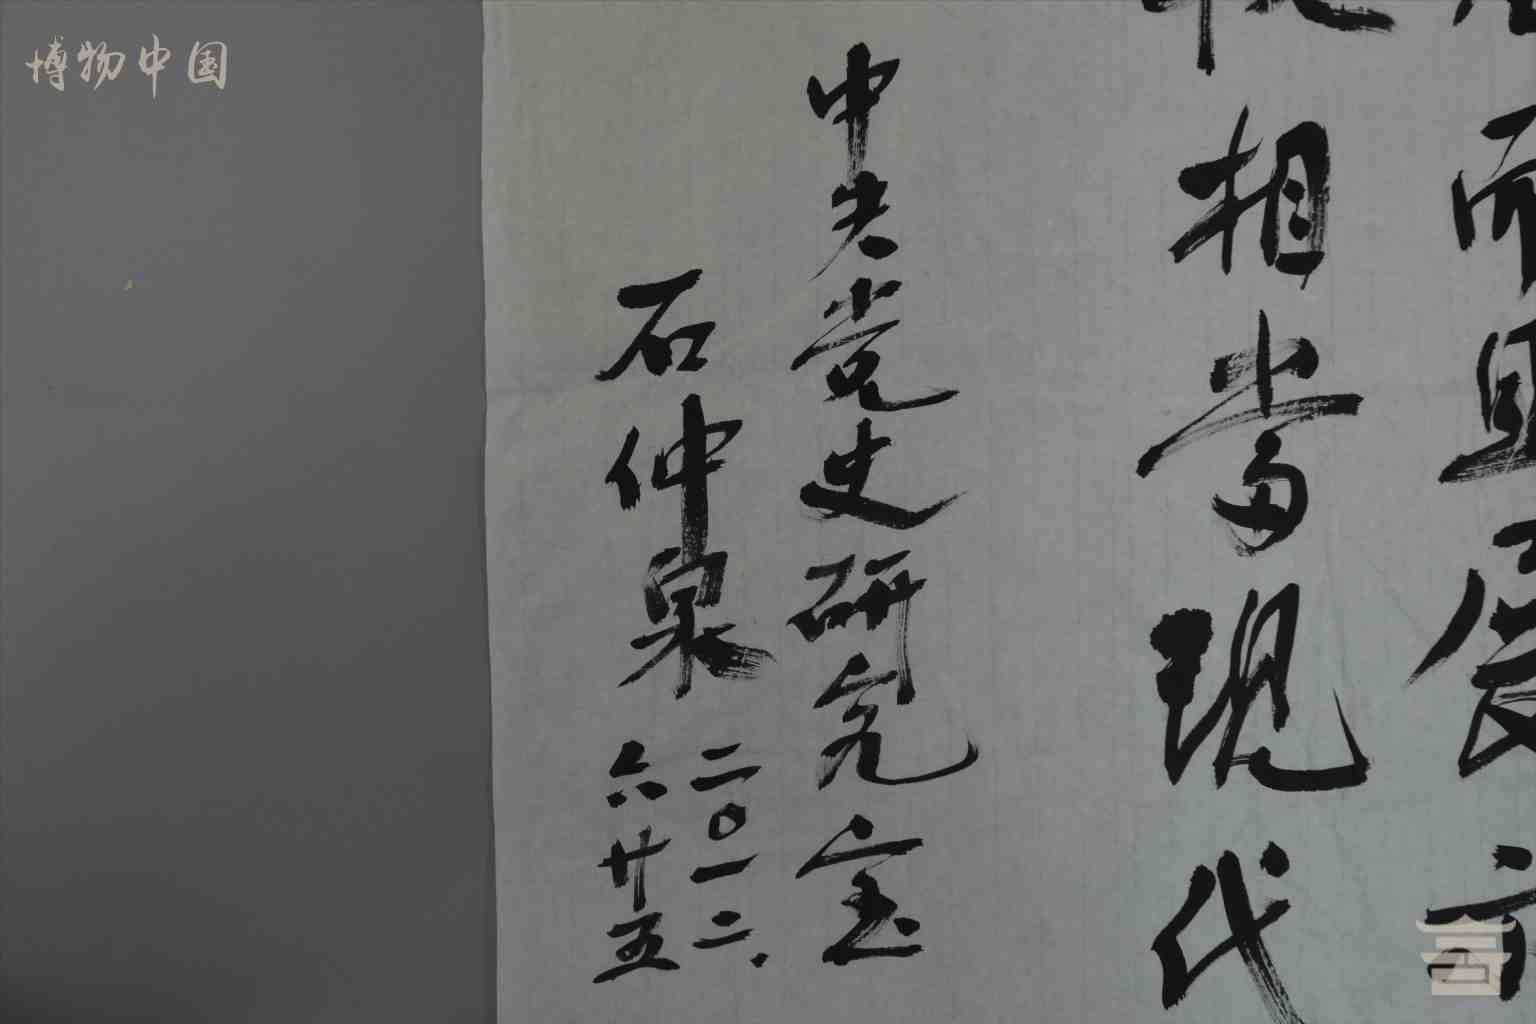 博物中国
而且展示
相当现代
中共党史研究室
石仲泉
二〇一二.
六廿五